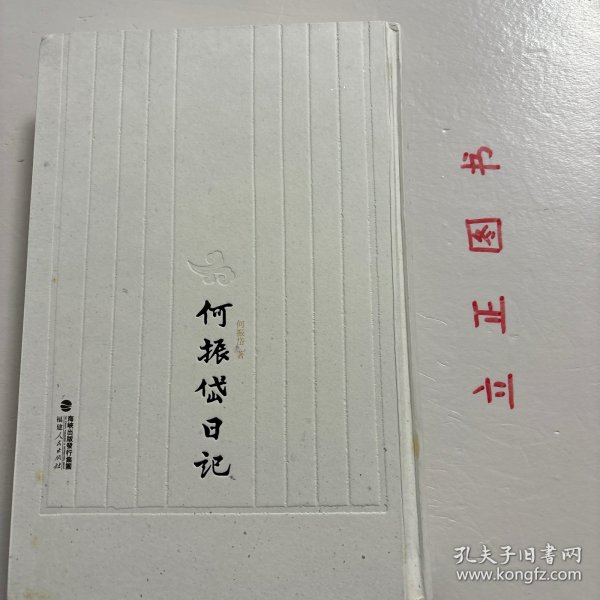 何振岱日记
何振岱 著
海峡出版發行集團
福建人民出版社
立正图书
孔夫子旧书网
www.kongfz.com